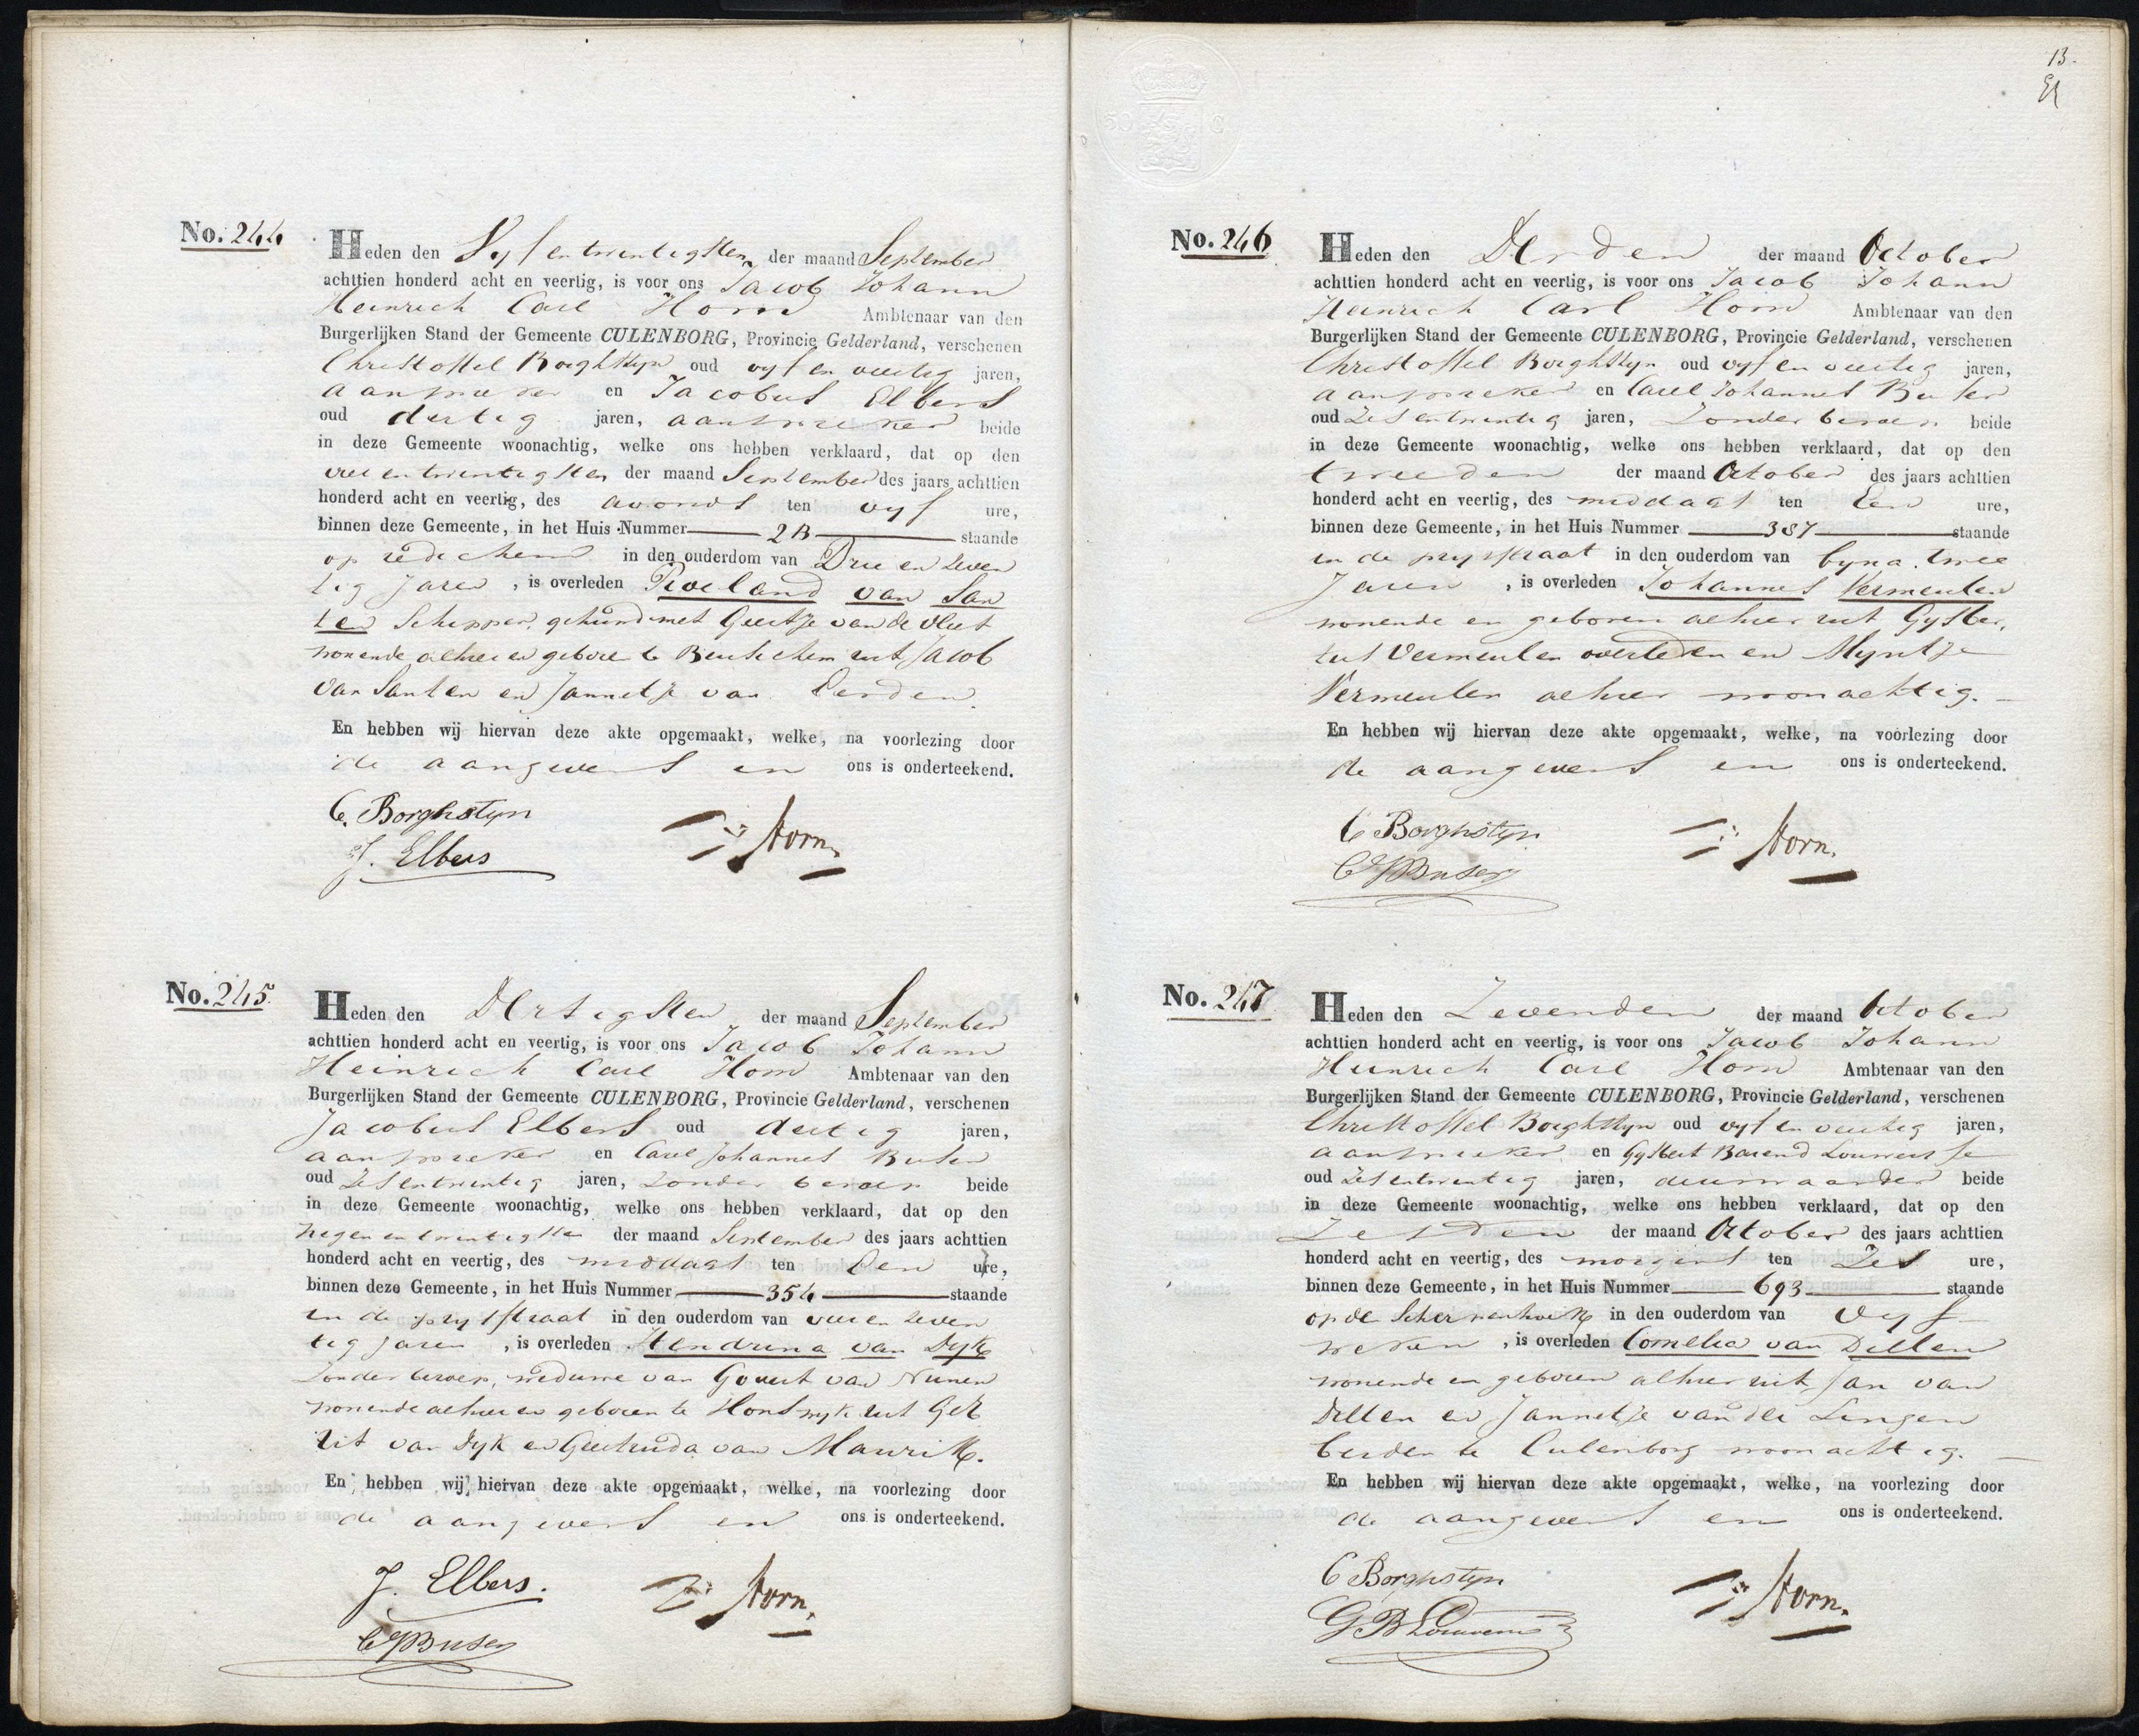 No. 244
Heden den Vyf en twintigsten der maand September
achttien honderd acht en veertig, is voor ons Jacob Johann
Heinrich Carl Horn Ambtenaar van den
Burgerlijken Stand der Gemeente CULENBORG, Provincie Gelderland, verschenen
Christoffel Borghstyn oud vyf en veertig jaren,
aanspreker en Jacobus Elbers
oud dertig jaren, aanspreker beide
in deze Gemeente woonachtig, welke ons hebben verklaard, dat op den
vier en twintigsten der maand September des jaars achttien
honderd acht en veertig, des avonds ten vyf ure,
binnen deze Gemeente, in het Huis Nummer 2B staande
op redichem in den ouderdom van Drie en zeven
tig Jaren, is overleden Roeland van San
ten Schipper, gehuwd met Geertje van de Vliet
wonende alhier en geboren te Beusichem uit Jacob
van Santen en Jannetje van Eerden.
En hebben wij hiervan deze akte opgemaakt, welke, na voorlezing door
de aangevers en ons is onderteekend.
C. Borghstyn
J. Elbers
Horn.
No. 245
Heden den Dertigsten der maand September
achttien honderd acht en veertig, is voor ons Jacob Johann
Heinrich Carl Horn Ambtenaar van den
Burgerlijken Stand der Gemeente CULENBORG, Provincie Gelderland, verschenen
Jacobus Elbers oud dertig jaren,
aanspreker en Carel Johannes Buser
oud Zes en twintig jaren, Zonder beroep beide
in deze Gemeente woonachtig, welke ons hebben verklaard, dat op den
negen en twintigsten der maand September des jaars achttien
honderd acht en veertig, des middags ten Een ure,
binnen deze Gemeente, in het Huis Nummer 354 staande
in de prijsstraat in den ouderdom van vier en zeven
tig Jaren, is overleden Hendrina van Dyk
Zonder beroep, weduwe van Govert van Nunen
wonende alhier en geboren te Honswyk uit Ger
rit van Dyk en Geertruida van Maurik.
En hebben wij hiervan deze akte opgemaakt, welke, na voorlezing door
de aangevers en ons is onderteekend.
J. Elbers.
CJBuser
Horn.
13.
No. 246
Heden den Derden der maand October
achttien honderd acht en veertig, is voor ons Jacob Johann
Heinrich Carl Horn Ambtenaar van den
Burgerlijken Stand der Gemeente CULENBORG, Provincie Gelderland, verschenen
Christoffel Borghstyn oud vyf en veertig jaren,
aanspreker en Carel Johannes Buser
oud Zes en twintig jaren, Zonder beroep beide
in deze Gemeente woonachtig, welke ons hebben verklaard, dat op den
tweeden der maand October des jaars achttien
honderd acht en veertig, des middags ten Een ure,
binnen deze Gemeente, in het Huis Nummer 387 staande
in de prysstraat in den ouderdom van byna twee
Jaren, is overleden Johannes Vermeulen
wonende en geboren alhier uit Gysber,
tus Vermeulen overleden en Myntje
Vermeulen alhier woonachtig.
En hebben wij hiervan deze akte opgemaakt, welke, na voorlezing door
de aangevers en ons is onderteekend.
C Borghstyn
CJBuser
Horn.
No. 247
Heden den Zevenden der maand October
achttien honderd acht en veertig, is voor ons Jacob Johann
Heinrich Carl Horn Ambtenaar van den
Burgerlijken Stand der Gemeente CULENBORG, Provincie Gelderland, verschenen
Christoffel Borghstyn oud vyf en veertig jaren,
aanspreker en Gysbert Barend Louwersse
oud Zes en twintig jaren, deurwaarder beide
in deze Gemeente woonachtig, welke ons hebben verklaard, dat op den
Zesden der maand October des jaars achttien
honderd acht en veertig, des morgens ten Zes ure,
binnen deze Gemeente, in het Huis Nummer 693 staande
op de Scherpenhoek in den ouderdom van Vyf
weken, is overleden Cornelia van Dillen
wonende en geboren alhier uit Jan van
Dillen en Jannetje van der Lingen
beiden te Culenborg woonachtig.
En hebben wij hiervan deze akte opgemaakt, welke, na voorlezing door
de aangevers en ons is onderteekend.
C Borghstyn
GB Louwersse
Horn.